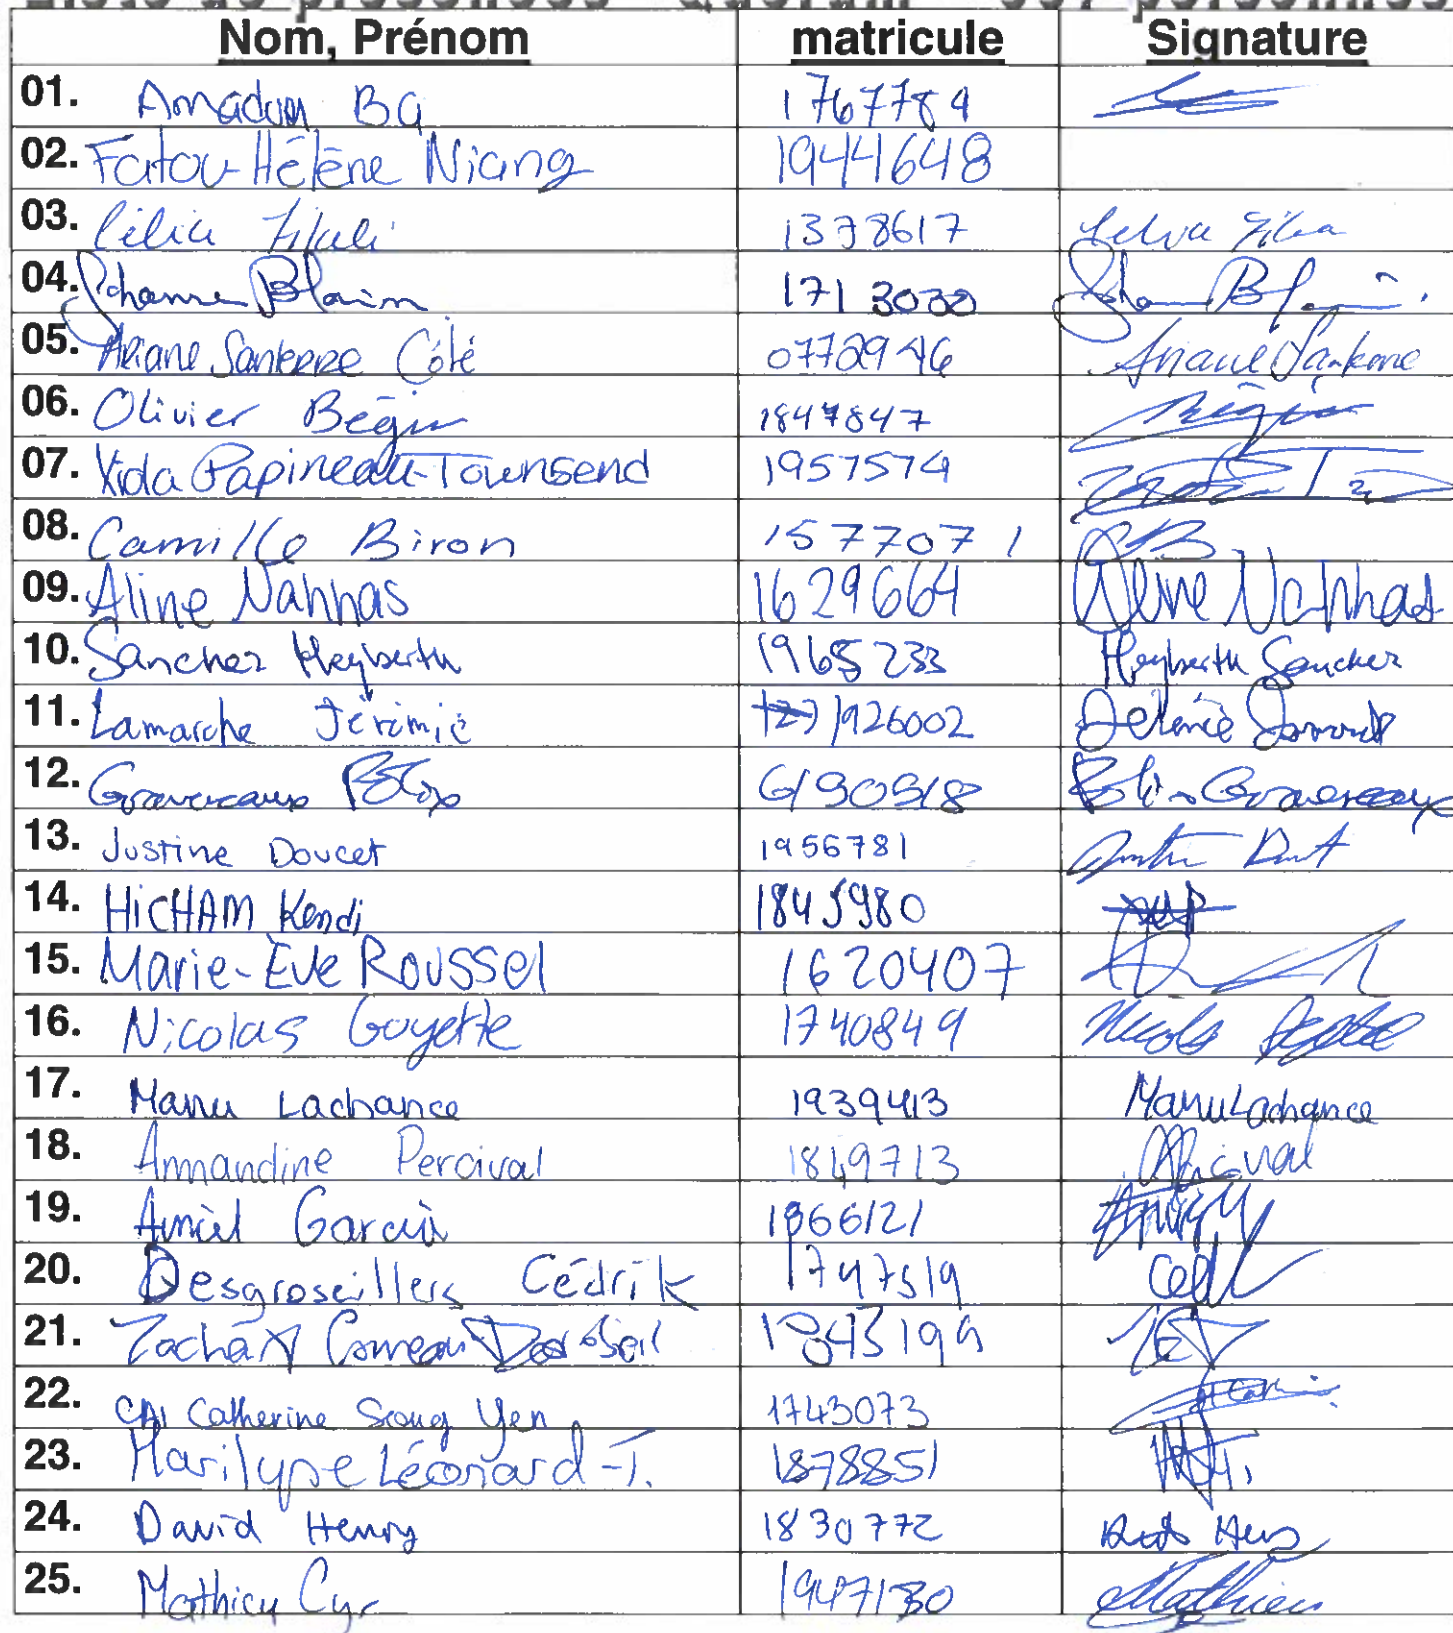 Nom, Prénom matricule Signature
01. Amadou Ba 1767784
02. Fatou-Hélène Niang 1944648
03. Célia 1378617
04. Johanne Blain 1713030
05. Ariane Sankerre Côté 0772946 Ariane Sankerre
06. Olivier Bégin 1847847 Bégin
07. Kida Papineau-Townsend 1957574
08. Camille Biron 1577071 CB
09. Aline Nahhas 1629664 Aline Nahhas
10. Sanchez Heyberth 1965233 Heyberth Sanchez
11. Lamarche Jérémie 1926002
12. Gravereaux 6190918 Gravereaux
13. Justine Doucet 1956781
14. HiCHAM Kendi 1845980
15. Marie-Ève Roussel 1620407
16. Nicolas Goyette 1740849 Nicolas Goyette
17. Manu Lachance 1939413 Manu Lachance
18. Amandine Percival 1849713 Percival
19. Garcia 1866121
20. Desgroseillers Cédrik 1747519 Ced
21. Zachary Comeau 1843199
22. CAI Catherine Seang Yen 1743073
23. Marilyne Léonard-T. 1878851
24. David Henry 1830772
25. Mathieu Cyr 1947130 Mathieu